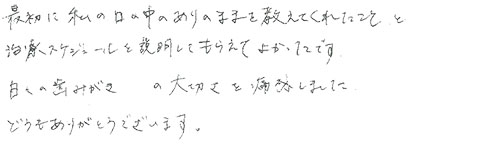 最初に私の口の中のありのままを教えてくれたこと と
治療スケジュールを説明してもらえてよかったです
日々の歯みがき の大切さを痛感しました
どうもありがとうございます。